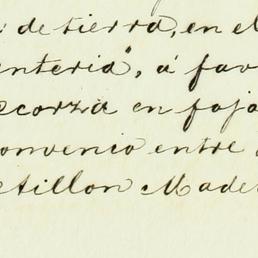 de tierra, en el
enteria", á fav
corza en foja
convenio entre
tillon Made